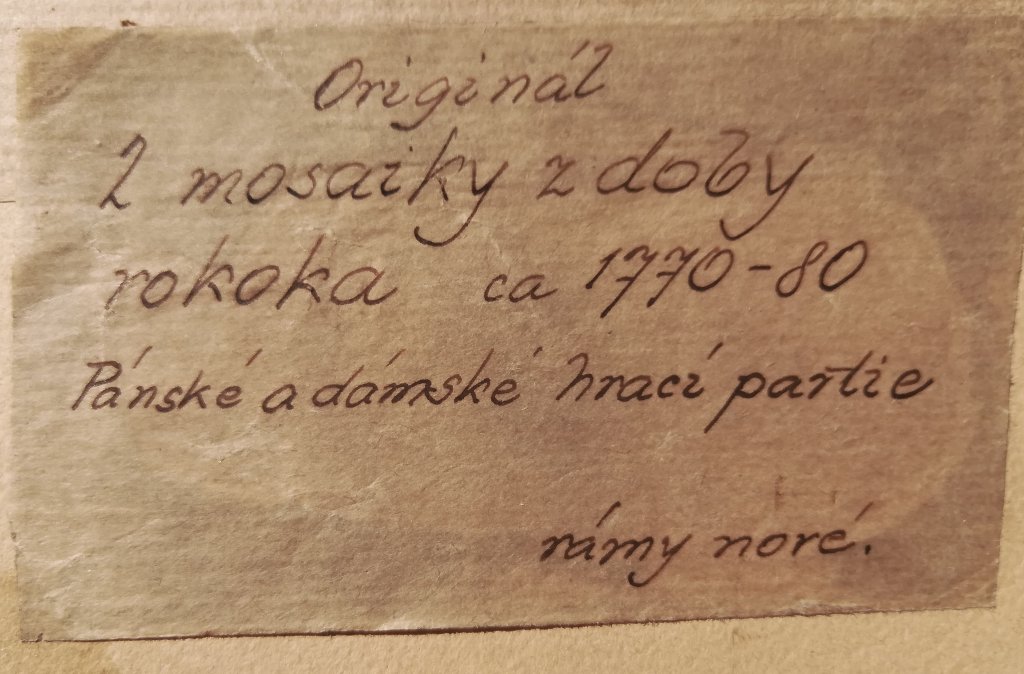 Originál
2 mosaiky z doby
rokoka ca 1770-80
Pánské a dámské hrací partie
rámy noré.